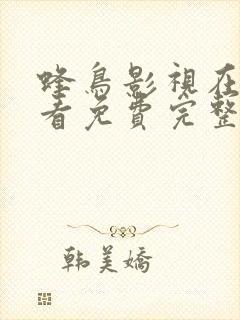 蜂鳥影視在
看免費完整
韩美嬌